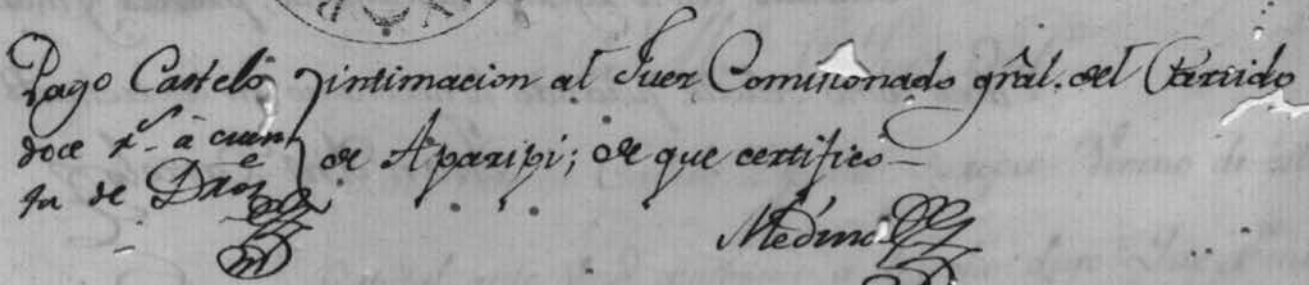 Pago Casteló
doce rs. à cuen
ta de Dros
intimacion al Juez Comicionado gral. del Partido
de Aparipi; de que certifico
Medina